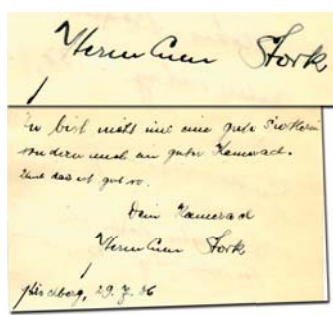 Hermann Stork
Du bist nicht nur eine gute
sondern auch ein guter Kamerad.
Und das ist gut so.
Dein Kamerad
Hermann Stork
Hirschberg, 29. 7. 36